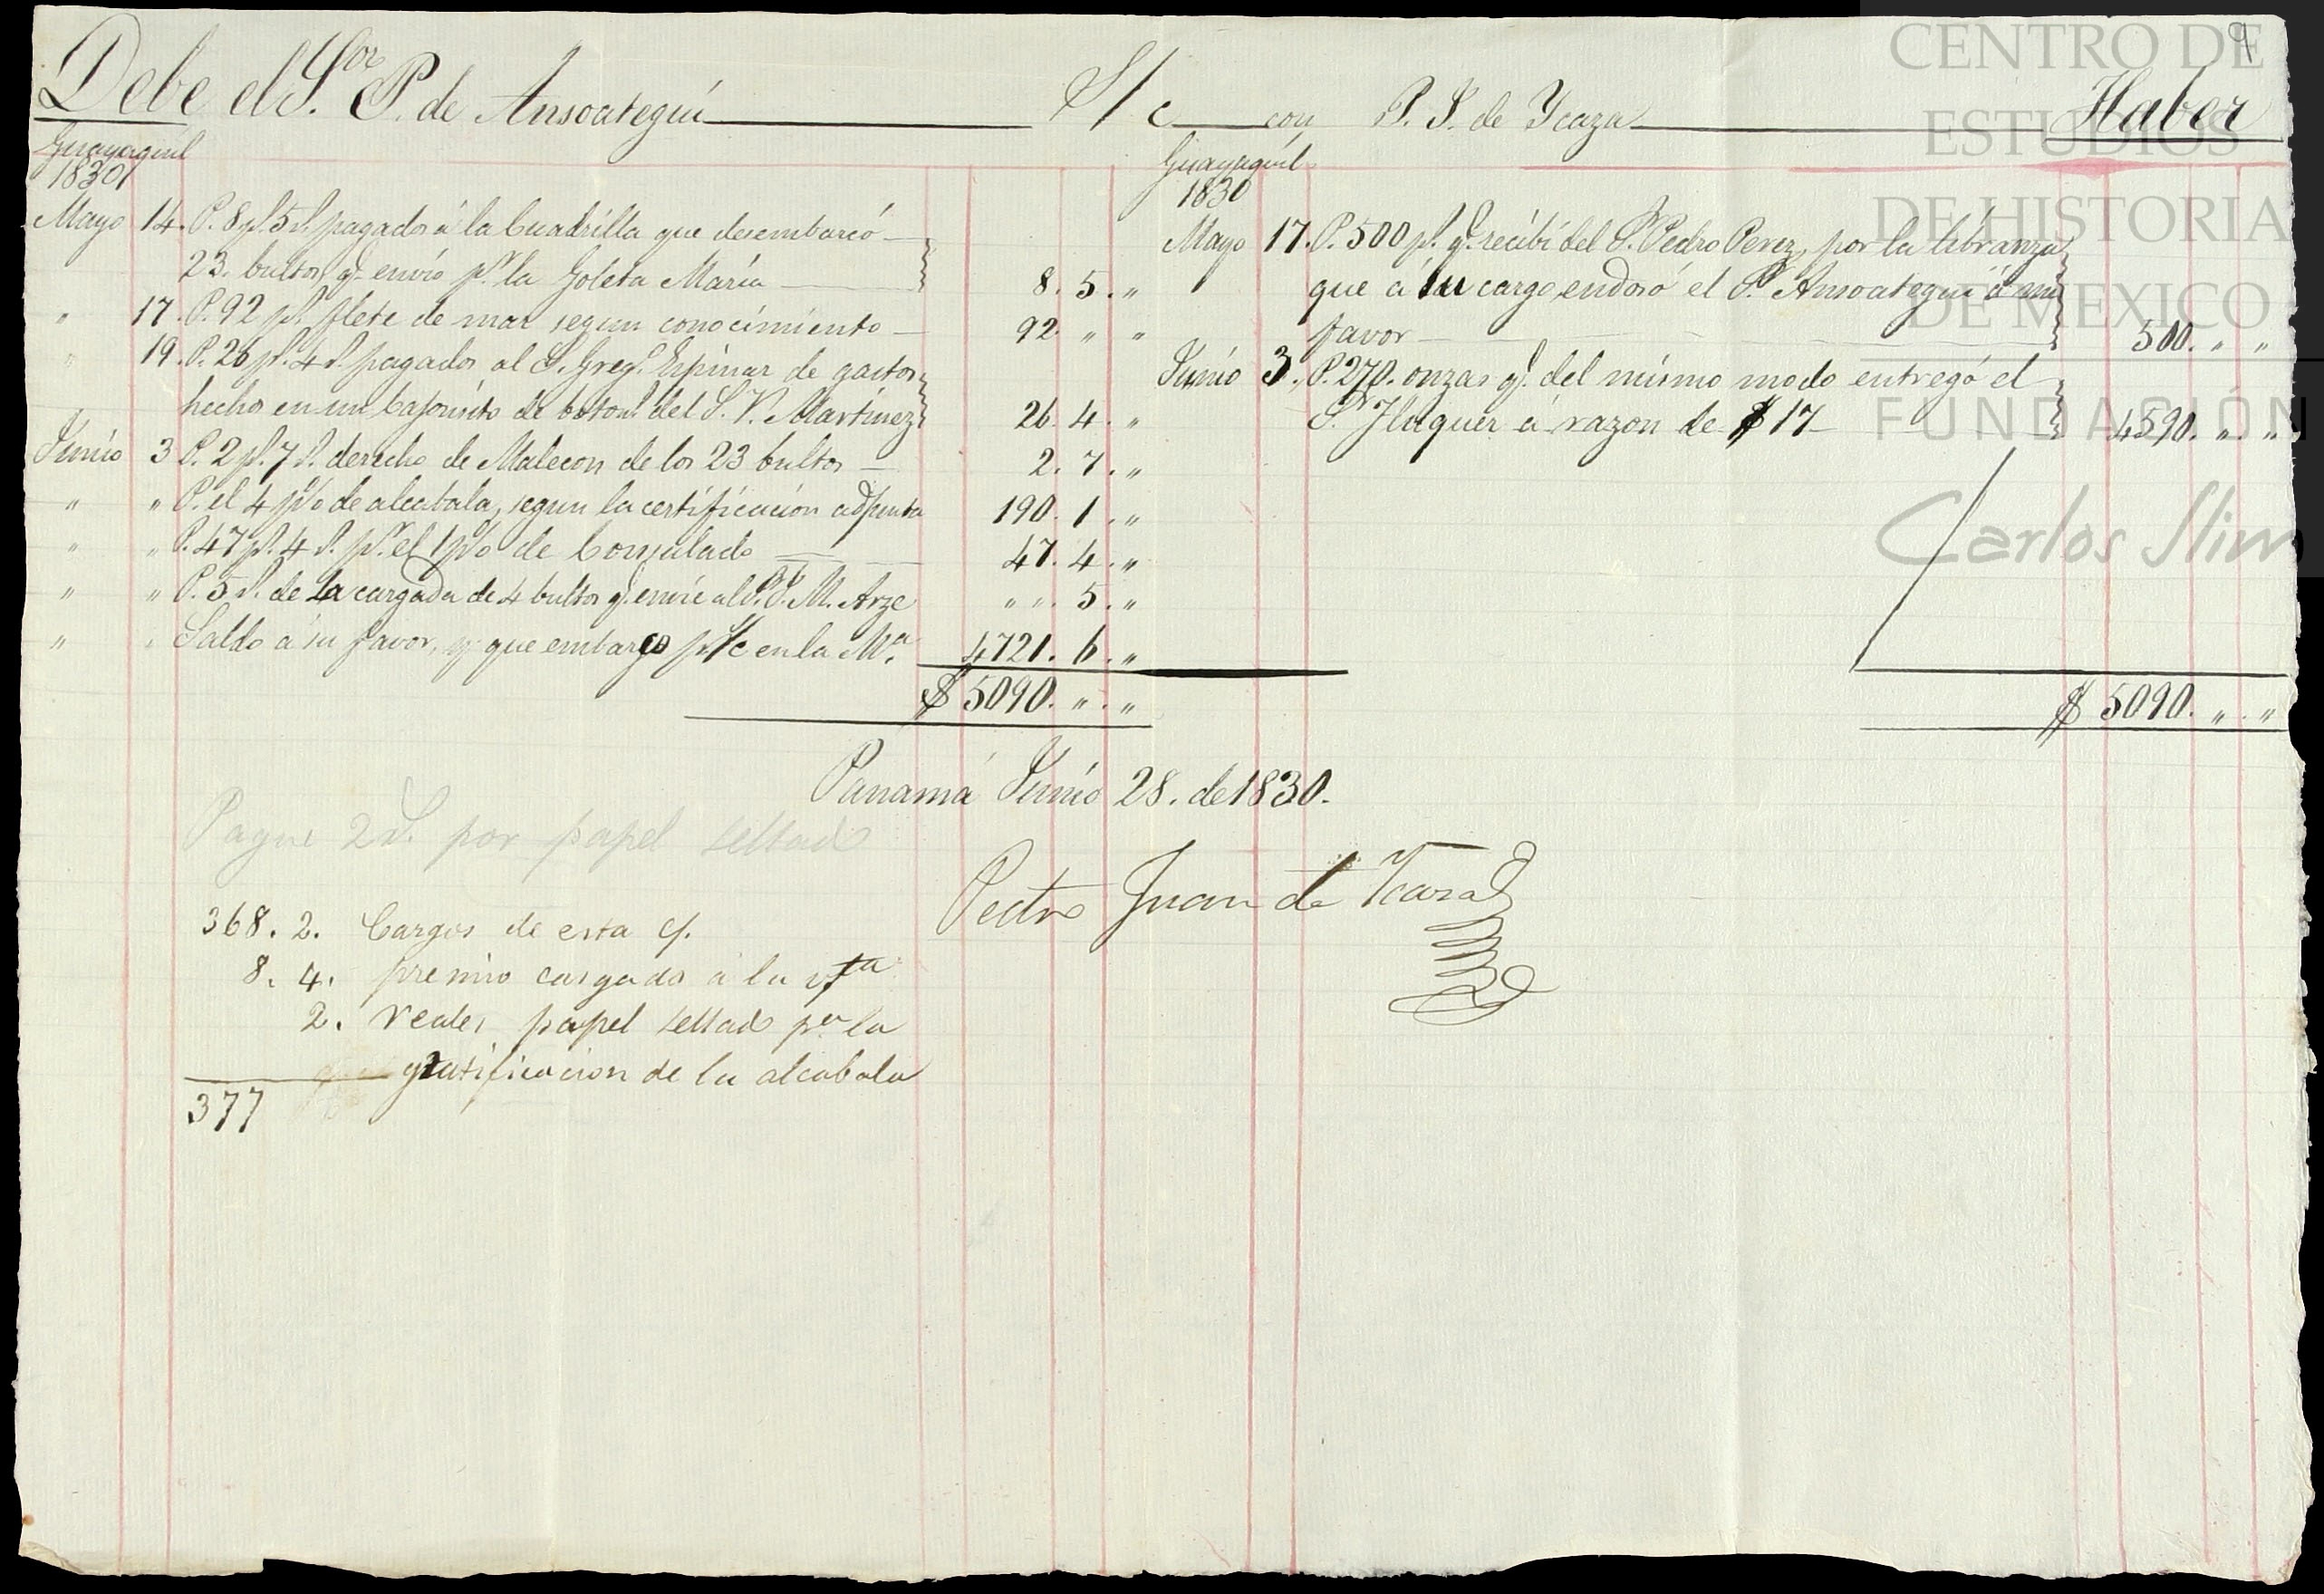 9
Debe el S.or P. de Ansoategui S/c con P. J. de Ycaza Haber
Guayaquil
1830
Mayo 14. P. 8 p.s 5 r.s pagados á la Cuadrilla que desembarcó
23. bultos q.e envío p.r la Goleta María 8. 5. "
" 17. P. 92 p.s flete de mar segun conocimiento 92. " "
" 19. P. 26 p.s 4 r.s pagados al S. Greg.o Espinar de gastos
hechos en un cajoncito de del S. V. Martinez 26. 4. "
Junio 3 P. 2 p.s 7 r.s derecho de Malecon de los 23 bultos 2. 7. "
" " P. el 4 p% de alcabala, segun la certificacion adjunta 190. 1. "
" " P. 47 p.s 4 r.s p.r el 1 p% de Consulado 47. 4. "
" " P. 5 r.s de la cargada de 4 bultos q.e envié al S. J. M. Arze " ". 5. "
" " Saldo á su favor, y que embarco p. s/c en la M.a 4721. 6. "
$ 5090. ". "
Guayaquil
1830
Mayo 17. P. 500 p.s q.e recibí del S.r Pedro Perez, por la libranza
que á su cargo, endosó el S.r Ansoategui á mi
favor 500. " "
Junio 3. P. 270. onzas q.e del mismo modo entregó el
S.r Yluguer á razon de $ 17 4590. ". "
$ 5090. ". "
Panamá Junio 28. de 1830.
Pedro Juan de Ycaza
Pague 2 r.s por papel sellado
368. 2. Cargos de esta c/.
8. 4. premio cargado á la v.ta
2. reales papel sellado p.a la
gratificacion de la alcabala
377
CENTRO DE
ESTUDIOS
DE HISTORIA
DE MEXICO
FUNDACIÓN
Carlos Slim